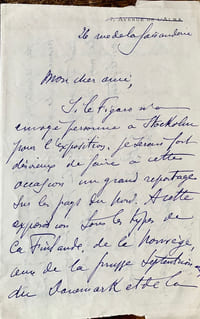 AVENUE DE L'ALMA
26 rue de la
Mon cher ami,
Si le Figaro n'a
envoyé personne à Stockolm
pour l'exposition, je serais fort
désireux de faire à cette
occasion un grand reportage
sur les pays du nord. A cette
exposition tous les types de
la Finlande, de la Norvège,
ceux de la prusse septentrion
du Danemark et de la